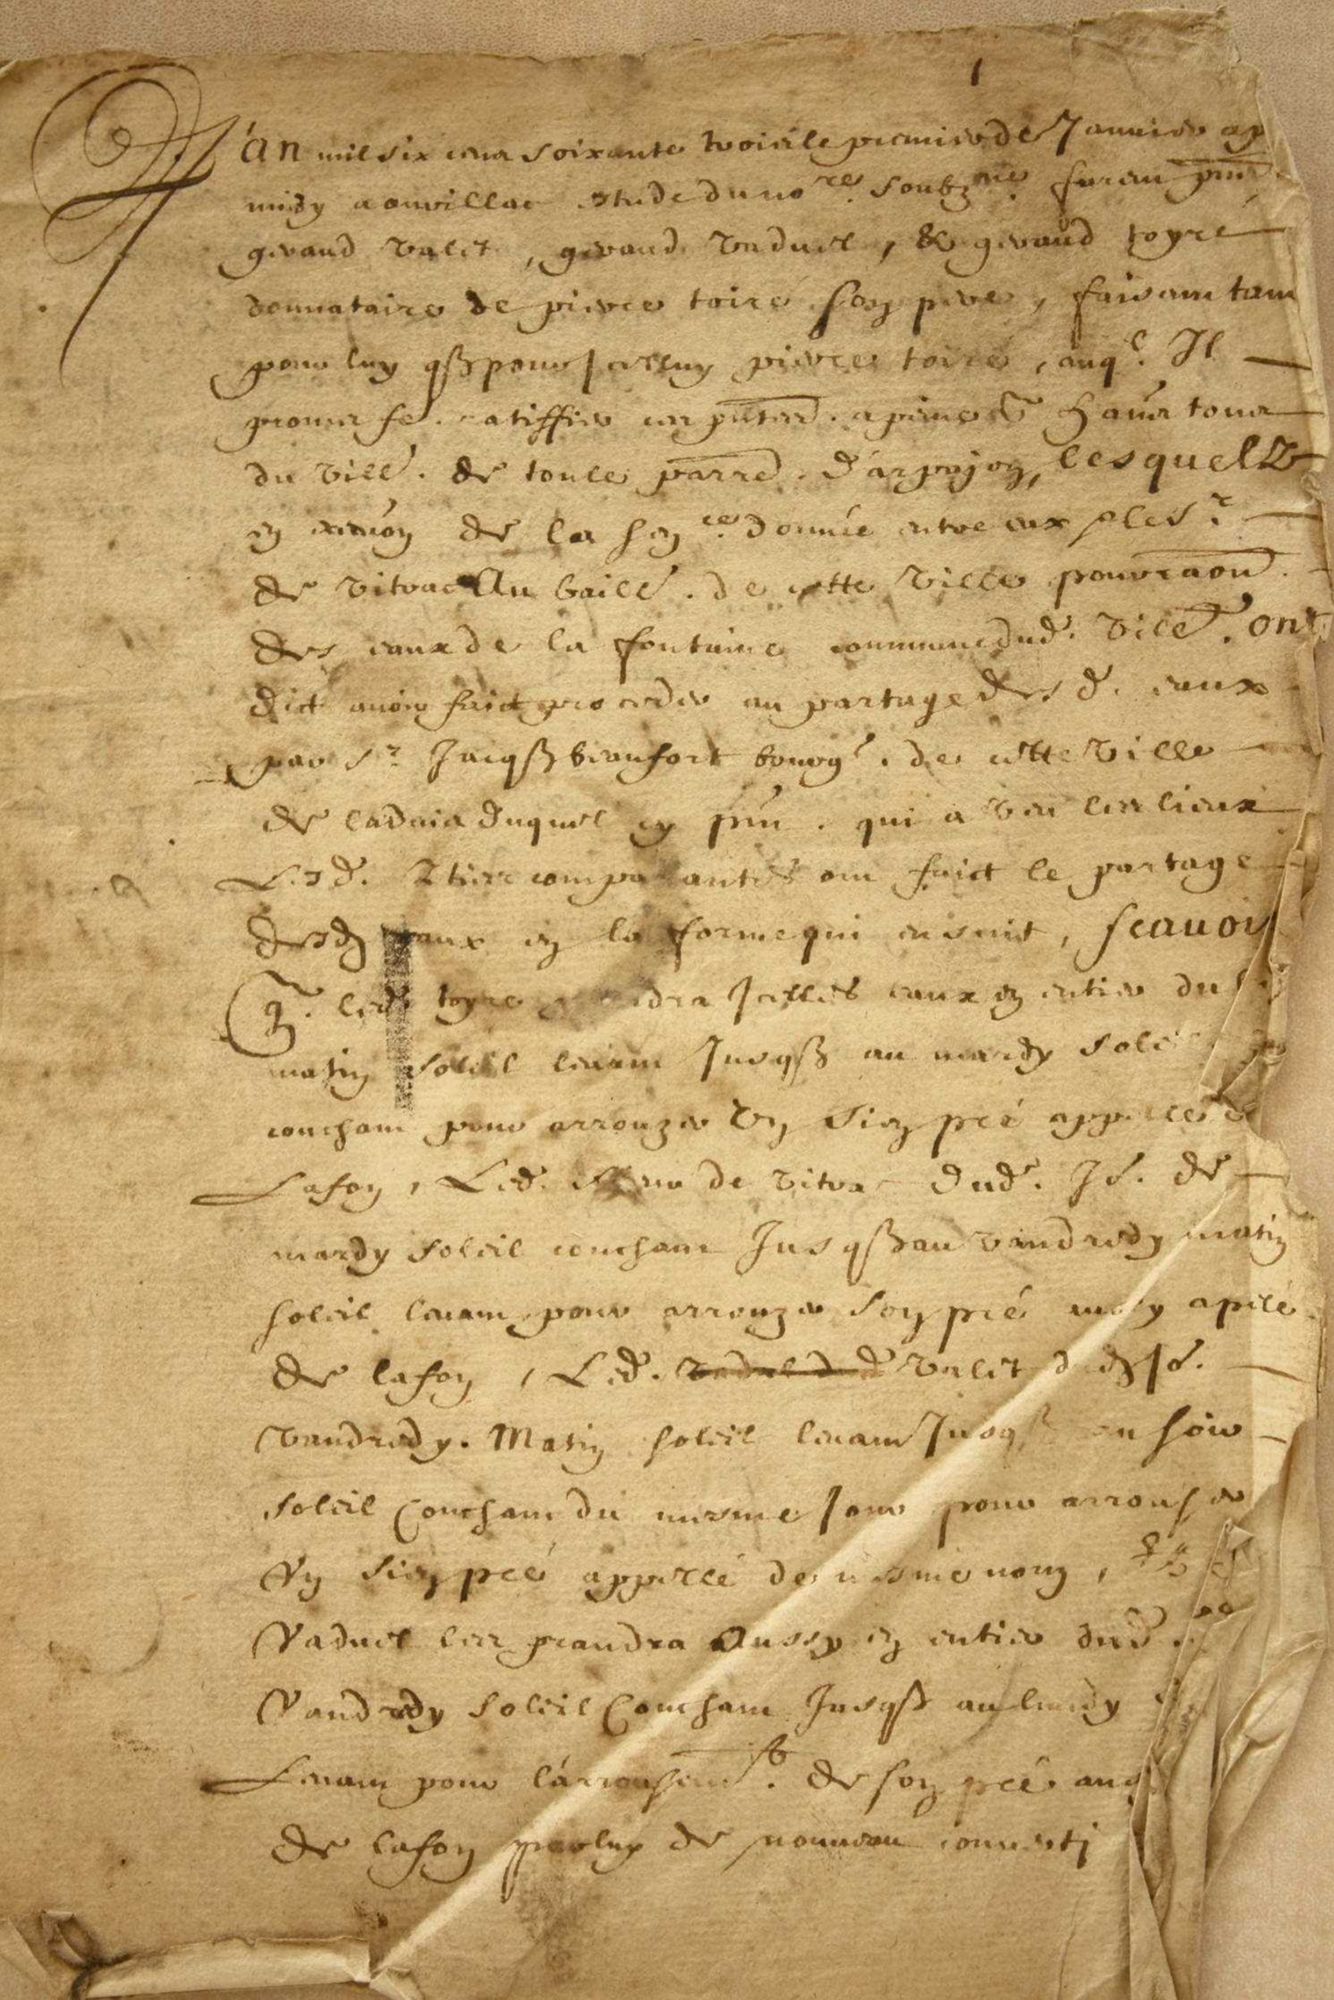 1
L'an mil six cens soixante trois et le premier de Janvier ap
midy a ourillac estude du no.re soubz.ne furent pnts
geraud valet, geraud vaduel, & geraud toyré
donnataire de pierre toiré son pere, faisant tant
pour luy q pour Icelluy pierre toiré, auql. Il
promet fe. ratiffier ces puter. a peine &
du villé. de toule parre. d'arpajon, lesquelz
en de la sen.ce donnée entre eux & le s.r
de vitrac Au baillé. de cette ville pour raon
des eaux de la fontaine commune dud. vilé. ont
dict avoir faict proceder au partage des d. eaux
par s.r Jacqs beaufort bourg.s de cette ville
de ladvis duquel cy pnt. qui a veu les lieux
Lesd. comparantes ont faict le partage
desd eaux en la forme qui ensuit, scavoir
q. led toyre dra Icelles eaux en entier du
matin soleil levant Jusqs au mardy soleil
couchant pour arrouzer un sien pré appellé
Lafon, Led. s.r de vitrac dud. Jo. de
mardy soleil couchant Jusqs au vandredy matin
soleil levant pour arrouzer son pré ausy apelé
de lafon, Led. valet dud Jo.
vandredy. Matin soleil levant Jusqs au soir
soleil couchant du mesme Jour pour arrouser
Un sien pré appellé de mesme nom,
Vaduel les prandra Aussy en entier dud
Vandredy soleil Couchant Jusqs au lundy
Levant pour l'arrousemt. de son pré
de lafon par luy de nouveau converti